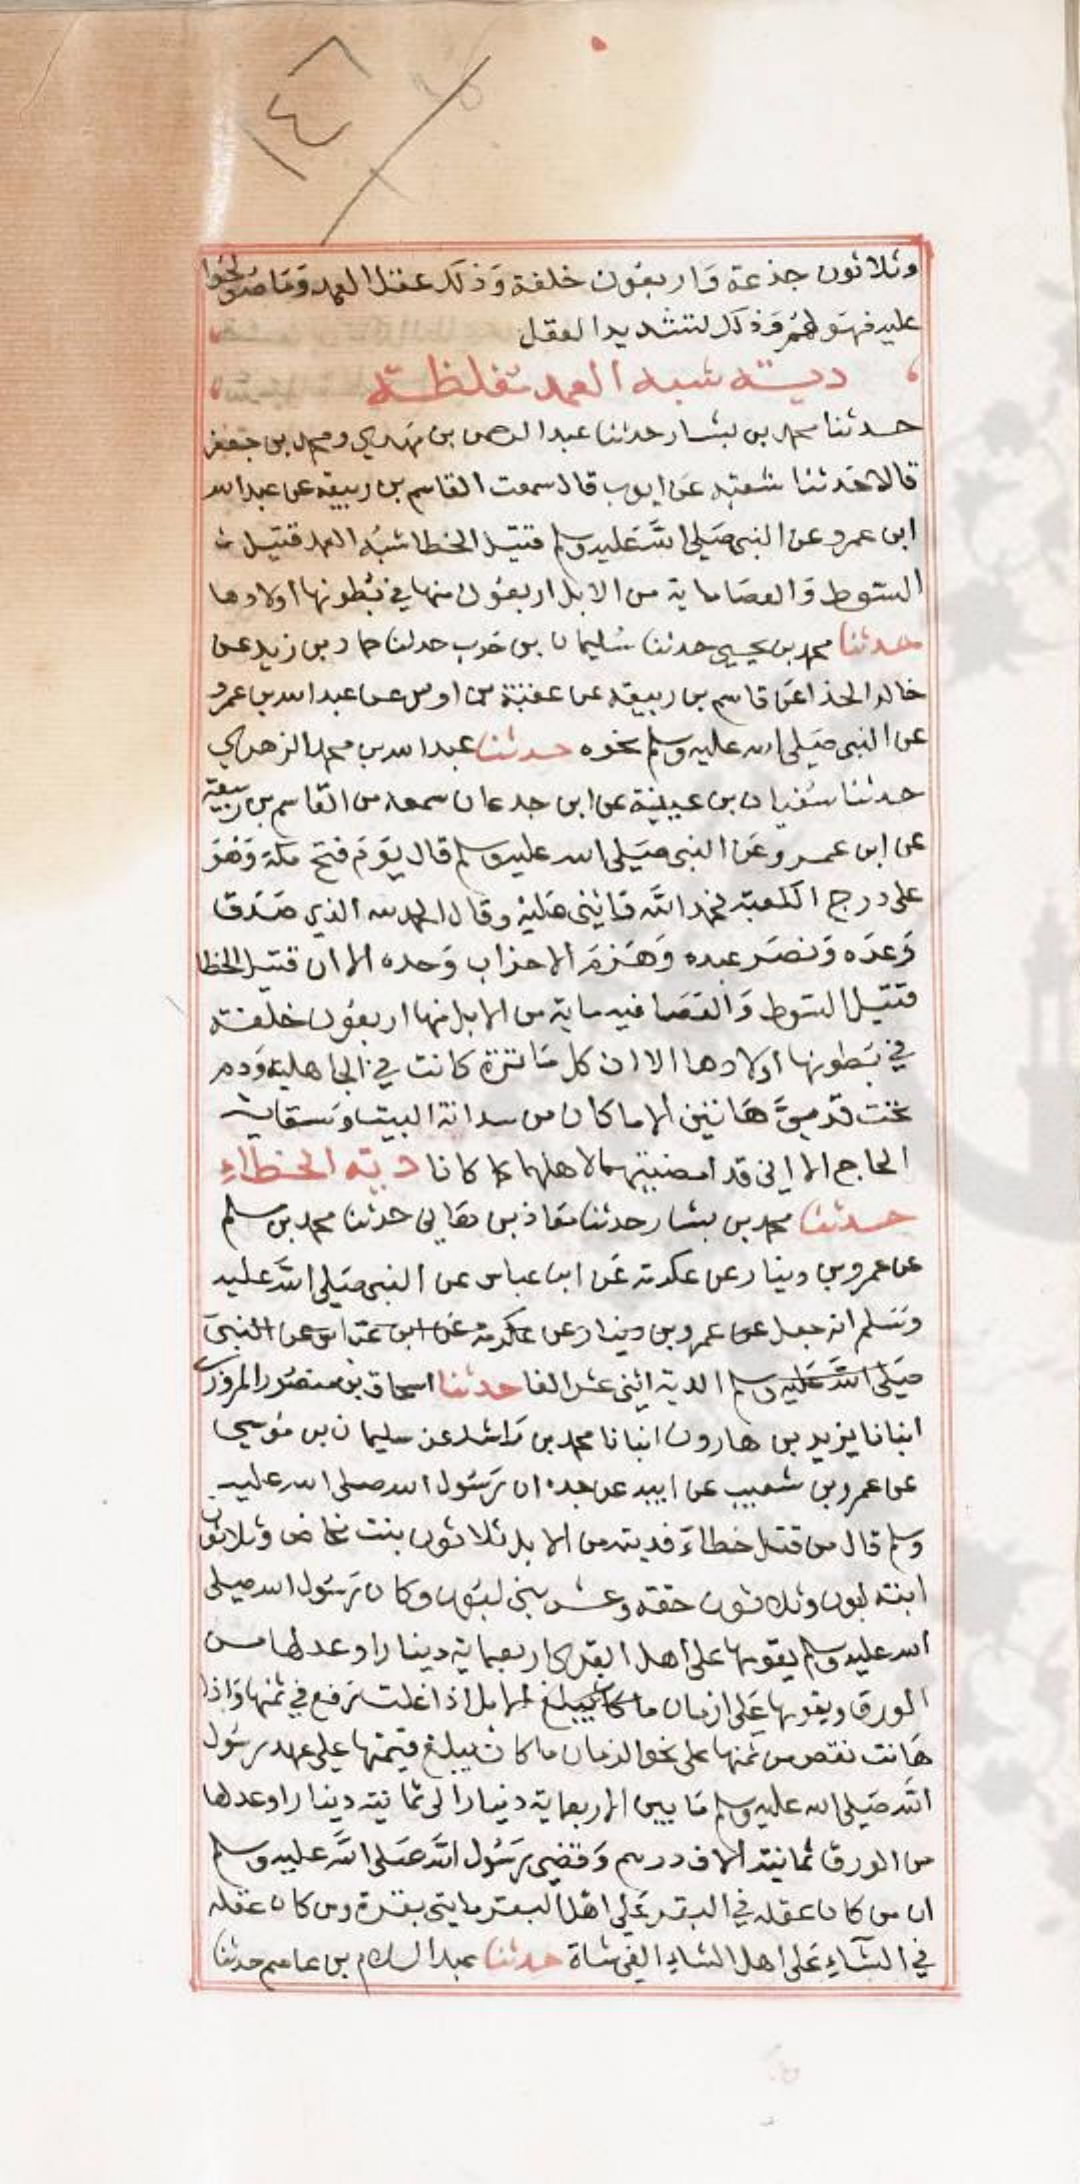 ١٤٦
وثلاثون جذعة واربعون خلفة وذلك عقل العمد وما صولحوا
عليه فهو لهم وذلك لتشديد العقل
دية شبه العمد مغلظة
حدثنا محمد بن بشار حدثنا عبد الرحمن بن مهدي ومحمد بن جعفر
قالا حدثنا شعبة عن ايوب قال سمعت القاسم بن ربيعة عن عبد الله
ابن عمرو عن النبي صلى الله عليه وسلم قتيل الخطا شبه العمد قتيل
السوط والعصا ماية من الابل اربعون منها في بطونها اولادها
حدثنا محمد بن يحيى حدثنا سليمان بن حرب حدثنا حماد بن زيد عن
خالد الحذا عن قاسم بن ربيعة عن عقبة بن اوس عن عبد الله بن عمرو
عن النبي صلى الله عليه وسلم نحوه حدثنا عبد الله بن محمد الزهري
حدثنا سفيان بن عيينة عن ابن جدعان سمعه من القاسم بن ربيعة
عن ابن عمرو عن النبي صلى الله عليه وسلم قال يوم فتح مكة وهو
على درج الكعبة فحمد الله واثنى عليه وقال الحمد لله الذي صدق
وعده ونصر عبده وهزم الاحزاب وحده الا ان قتيل الخطا
قتيل السوط والعصا فيه ماية من الابل منها اربعون خلفة
في بطونها اولادها الا ان كل ماثرة كانت في الجاهلية ودم
تحت قدمي هاتين الا ما كان من سدانة البيت وسقاية
الحاج الا اني قد امضيتهما لاهلهما كما كانا دية الخطاء
حدثنا محمد بن بشار حدثنا معاذ بن هاني حدثنا محمد بن مسلم
عن عمرو بن دينار عن عكرمة عن ابن عباس عن النبي صلى الله عليه
وسلم انه جعل عن عمرو بن دينار عن عكرمة عن ابن عباس عن النبي
صلى الله عليه وسلم الدية اثنى عشر الفا حدثنا اسحاق بن منصور المروزي
انبانا يزيد بن هارون انبانا محمد بن راشد عن سليمان بن موسى
عن عمرو بن شعيب عن ابيه عن جده ان رسول الله صلى الله عليه
وسلم قال من قتل خطاء فديته من الابل ثلاثون بنت مخاض وثلاثون
ابنة لبون وثلاثون حقة وعشر بني لبون وكان رسول الله صلى
الله عليه وسلم يقومها على اهل القرى اربعماية دينار او عدلها من
الورق ويقومها على ازمان ما كان يبلغ الابل اذا غلت رفع في ثمنها واذا
هانت نقص من ثمنها على نحو الزمان ما كان فبلغ قيمتها على عهد رسول
الله صلى الله عليه وسلم ما بين الاربعماية دينار الى ثمانية دينار او عدلها
من الورق ثمانية الاف درهم وقضى رسول الله صلى الله عليه وسلم
ان من كان عقله في البقر على اهل البقر مايتي بقرة ومن كان عقله
في الشاء على اهل الشاء الفي شاة حدثنا عبد السلام بن عاصم حدثنا